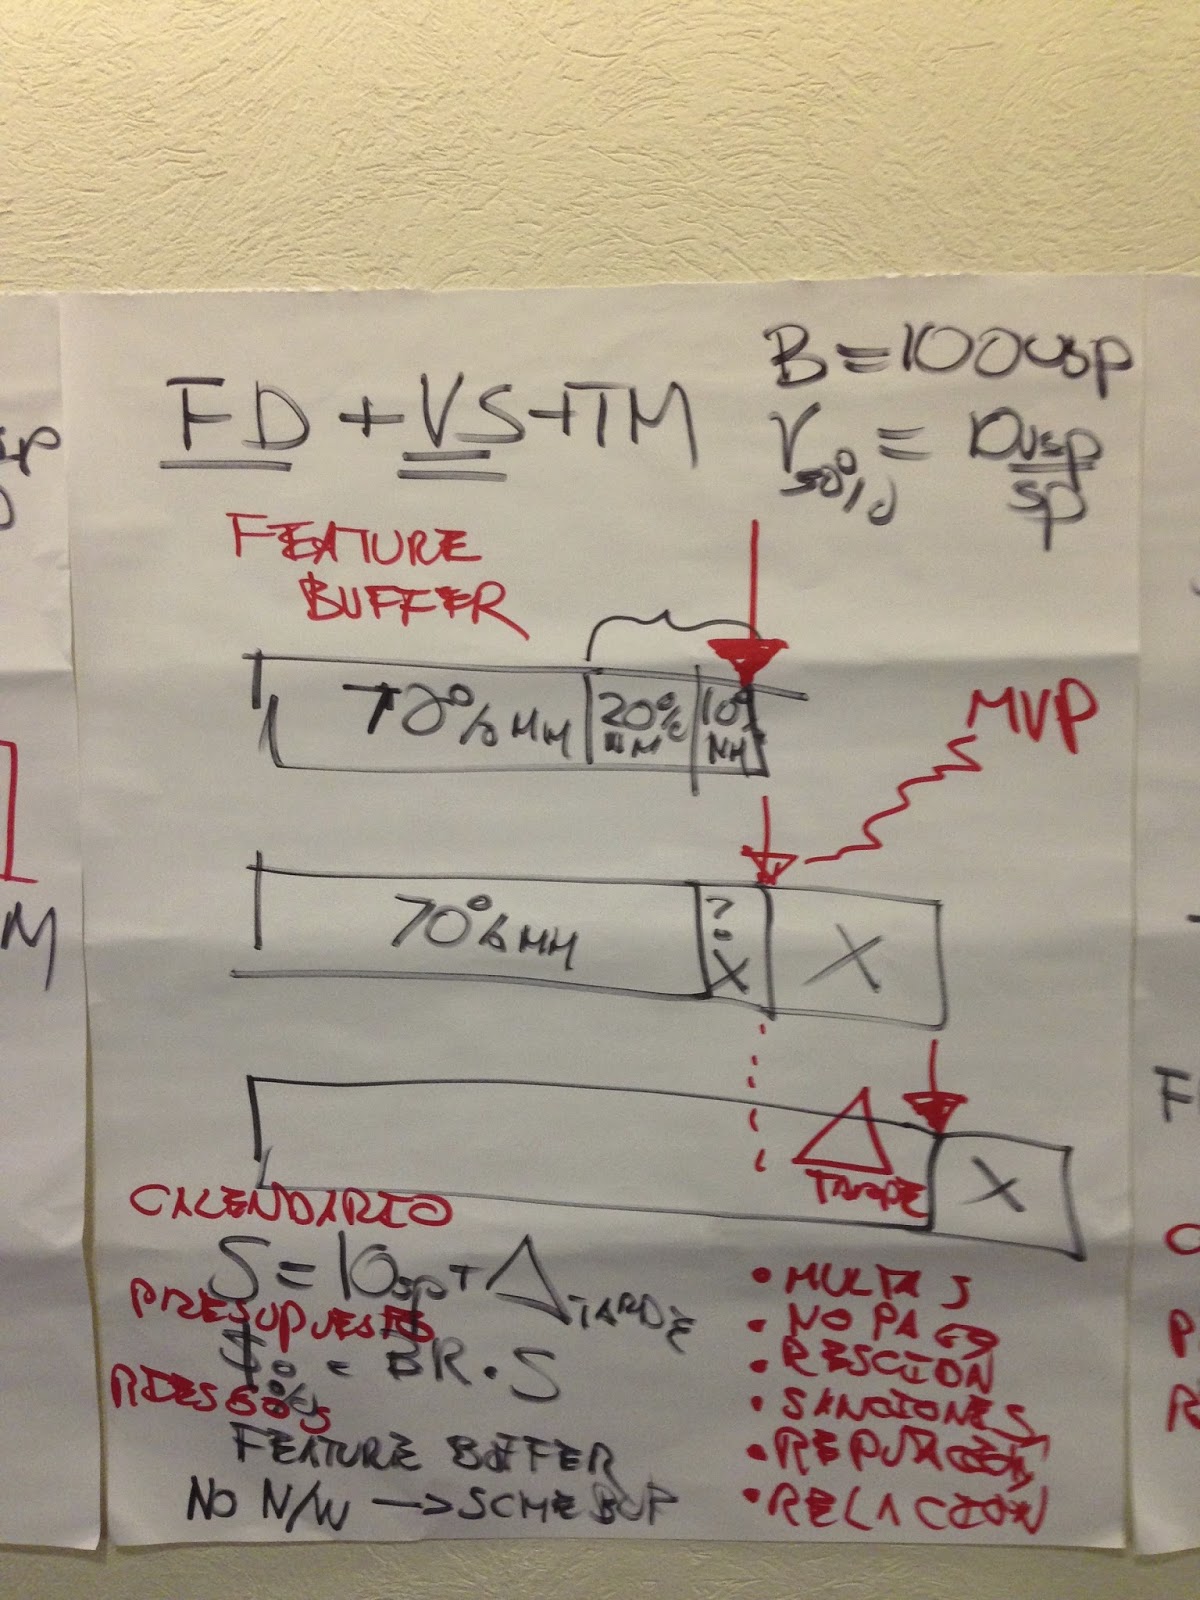 FD + VS + TM
B = 100usp
V50% = 10usp/sp
FEATURE
BUFFER
70% MM
20%
10%
NH
MVP
70% MM
?
X
X
TARDE
X
CALENDARIO
S = 10sp + Δ TARDE
PRESUPUESTO
= BR • S
RIESGOS
FEATURE BUFFER
NO N/W → SCHEBUF
• MULTAS
• NO PAGO
• RESCION
• SANCIONES
• REPUTACION
• RELACION
sp
M
F